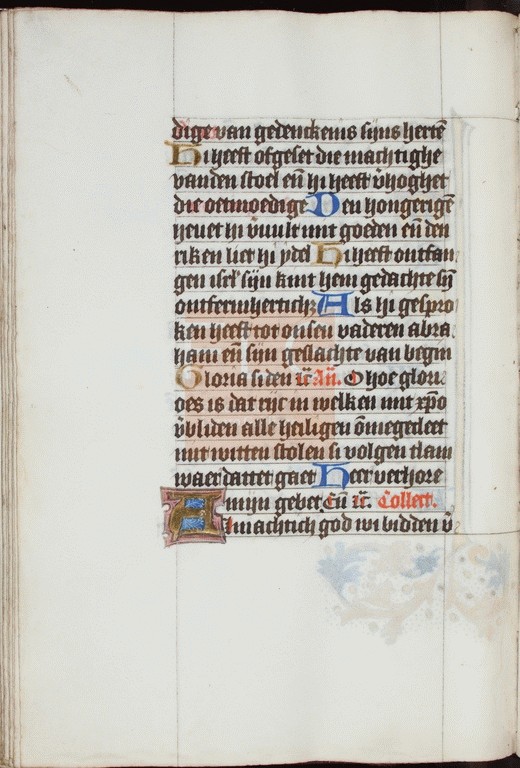 dige van gedenckenis sijns hertē
Hi heeft ofgeset die machtighe
vanden stoel eñ hi heeft v̄hoghet
die oetmoedige Den hongerigē
heuet hi v̄uult mit goeden eñ den
riken liet hi ydel Hi heeft ontfan
gen isrl̄ sijn kint hem gedachte sijn
ontfermhertich; Als hi gespro
ken heeft tot onsen vaderen abra
ham eñ sijn geslachte van begin
Gloria si den ic̄ Añ. O hoe glori
oes is dat rijc in welken mit xp̄o
v̄bliden alle heiligen ōmegecleet
mit witten stolen si volgen tlam
waer dattet gaet Heer verhore
mijn gebet. Eñ ic̄. Collect.
Almachtich god wi bidden v̄